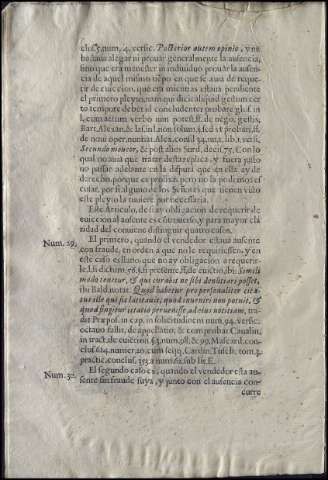 cls. 57. num. 4. versic. Posterior autem opinio, y no
bastaua alegar ni prouar generalmente la ausencia,
sino que era menester in indiuiduo prouar la ausencia
de aquel mismo tiempo en que se auia de requerir
de euiccion, que era mientras estaua pendiente
el primero pleyto, nam qui dicit aliquid gestum certo
tempore debet id concludenter probare glos. in
l. cum actum verbo non potest, ff. de negot. gestis,
Bart. Alexan. & Iason
de noui oper. nuntiat. Alex. consil. 34. num. lib. 1. versic.
Secundo mouetur, & post alios Surd. decis. 75. Con lo
qual no auia que tratar desta replica, y fuera justo
no passar adelante en la disputa que en ella ay de
derecho, porque es prolixa, pero no la podemos escusar,
por si alguno de los Señores que tienen visto
este pleyto la tuuiere por necessaria.
Este Articulo, de si ay obligacion de requerir de
euiccion al ausente, es controuerso, y para mayor claridad
del conuiene distinguir quatro casos.
Num. 29. El primero, quando el vendedor estaua ausente
con fraude, en orden a que no le requiriessen, y en
este caso es llano que no ay obligacion a requerirle.
l. si dichum, 56. §. si præsente, ff. de euictio, ibi: Simili
modo tenetur, & qui curauit ne sibi denuntiari posset,
ibi Bald. notat. Quod habetur pro personaliter citatus
ille qui sic latitauit, quod inueniri non potuit, &
quod fingitur citatio peruenisse ad eius notitiam, tradit
Præpos. in cap. in sollicitudinem num. 94. versic.
octauo fallit, de appellatio. & tom. probat Caualin.
in tract. de euiction. §. 3. num. 98. & 99. Mascard. conclus.
614. numer. 20. cum seqq. Cardin. Tusch. tom. 3.
practic. conclus. 359. a num. 61. sub lit. E.
Num. 30. El segundo caso es, quando el vendedor està ausente
sin fraude suya, y junto con el ausencia concurre